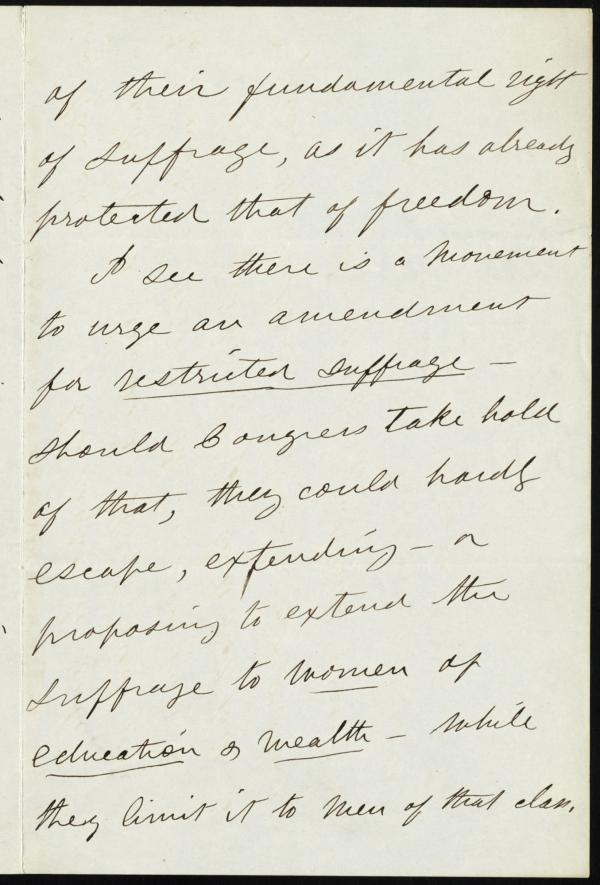 of their fundamental right
of suffrage, as it has already
protected that of freedom.
I see there is a movement
to urge an amendment
for restricted suffrage —
should Congress take hold
of that, they could hardly
escape, extending — or
proposing to extend the
suffrage to women of
education & wealth — while
they limit it to men of that class.